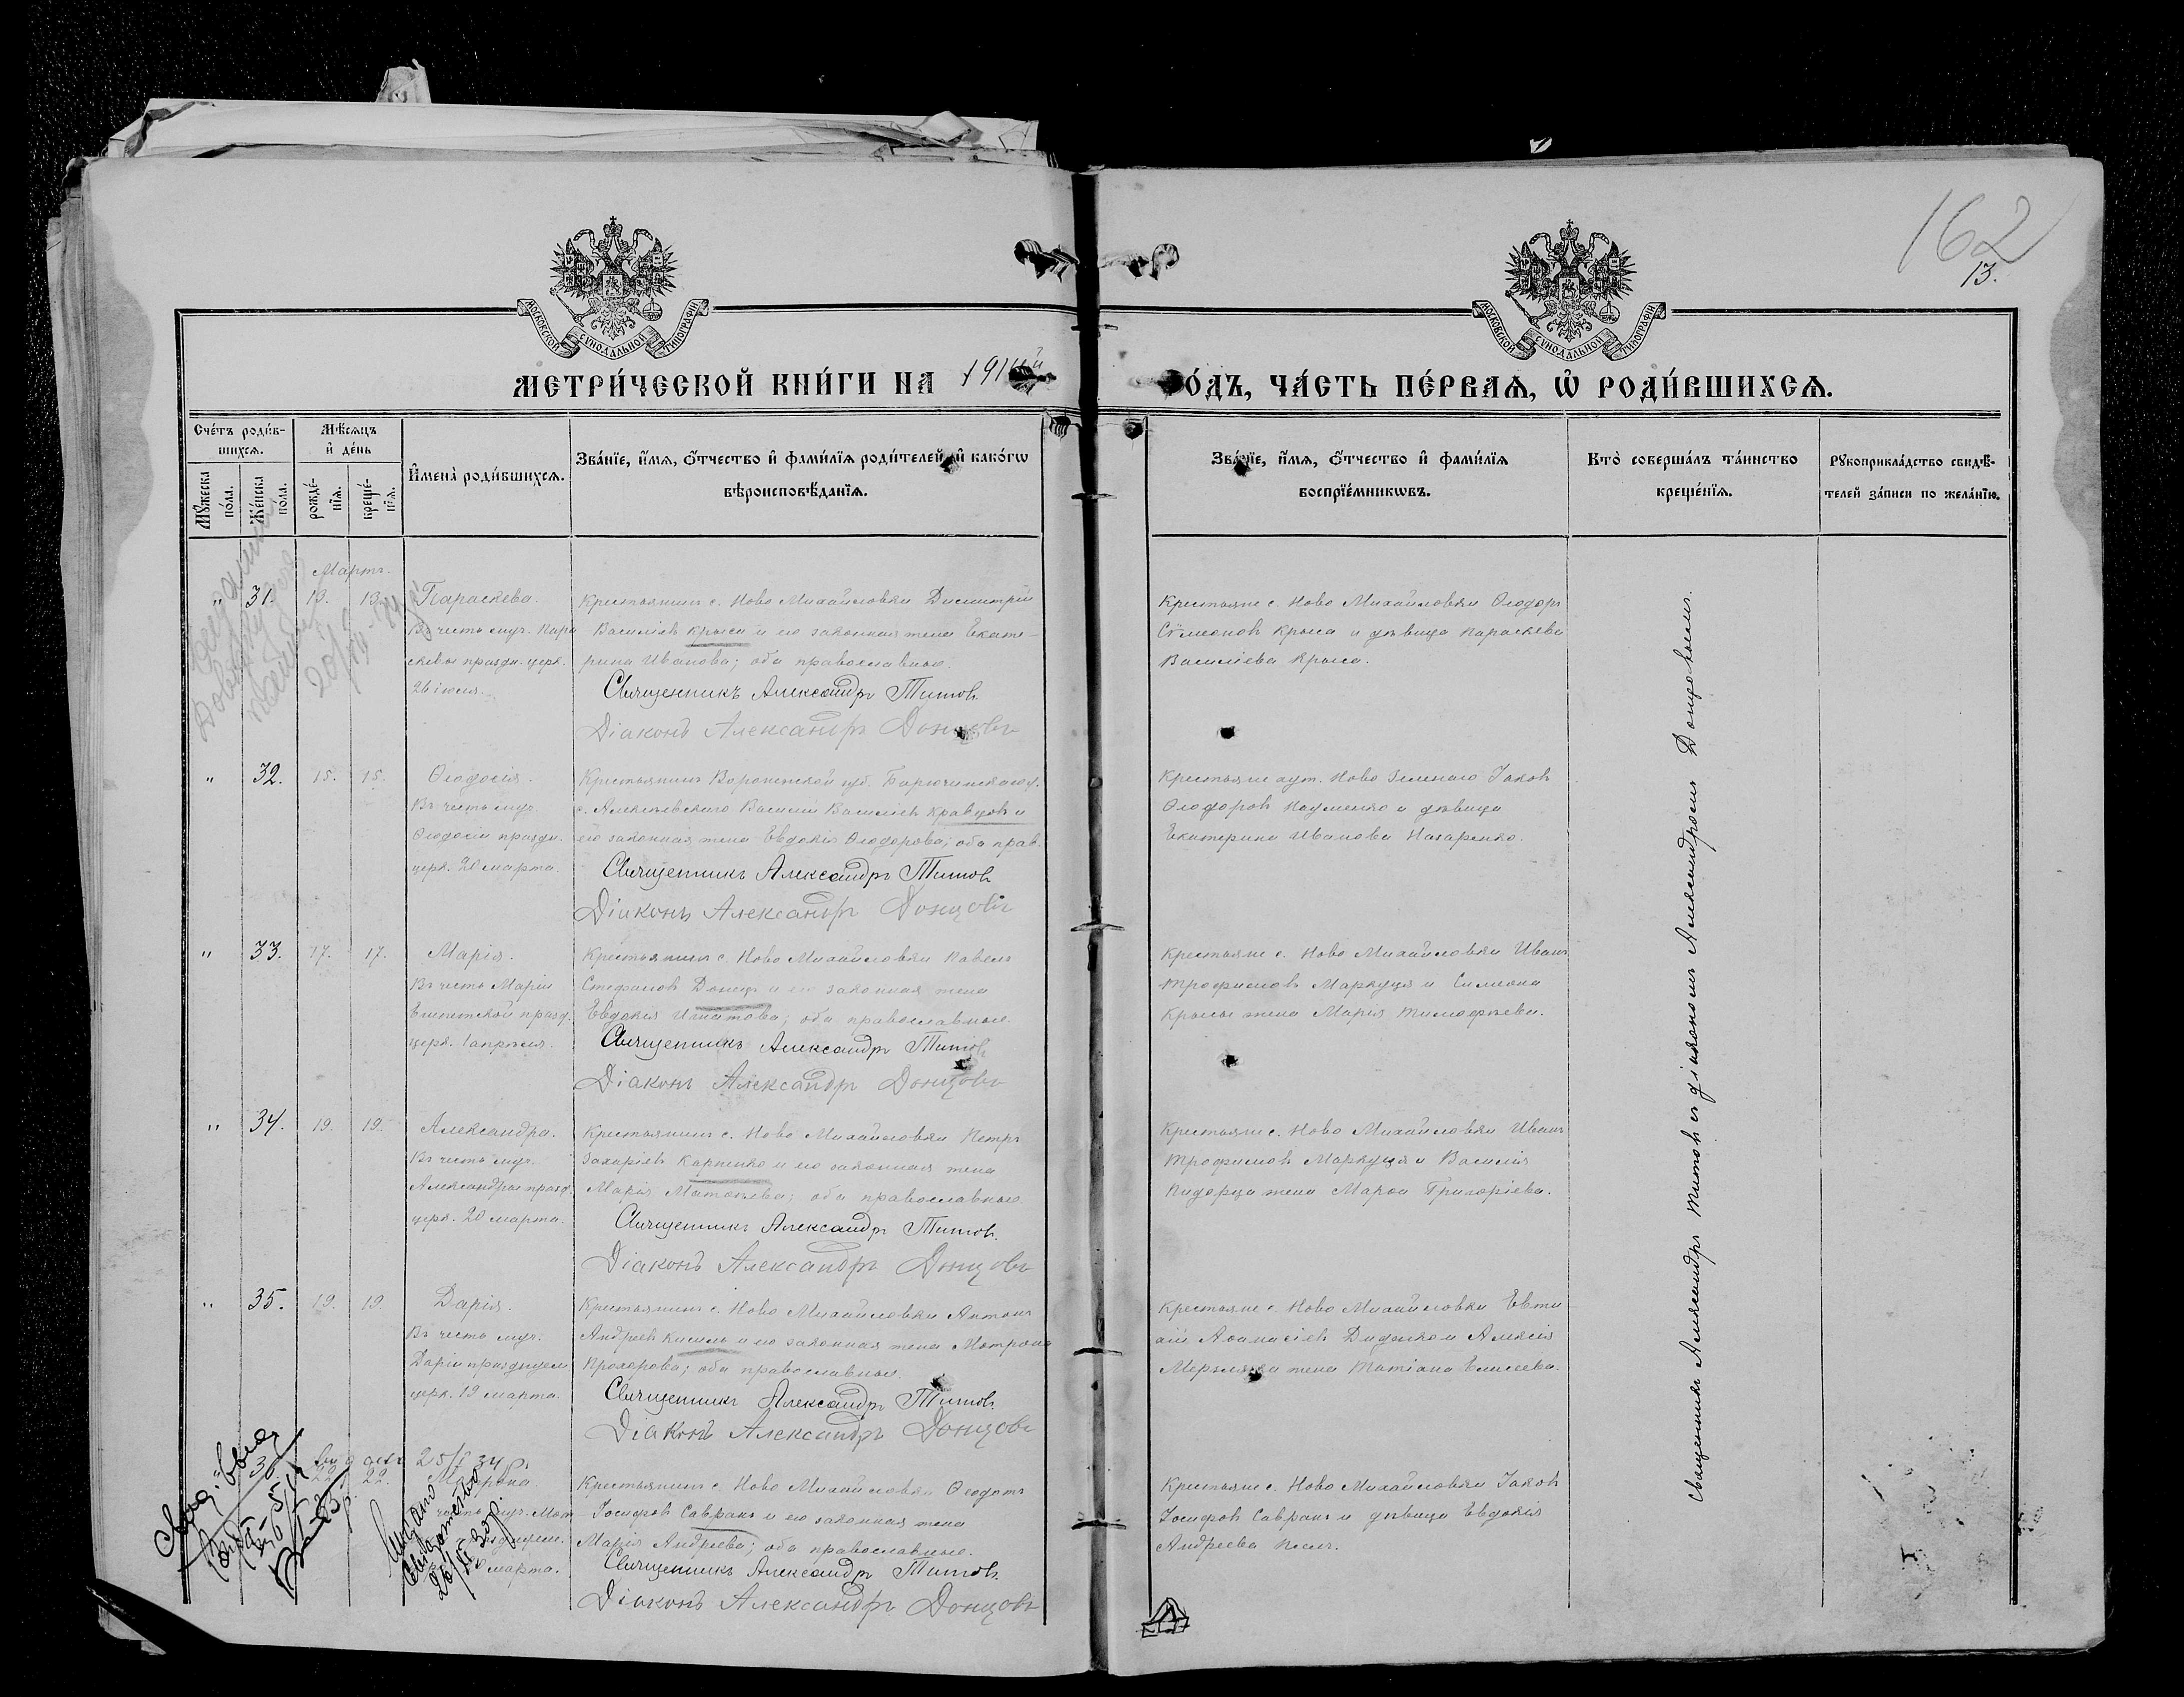 162
13.
МОСКОВСКОЙ СУНОДАЛЬНОЙ ТИПОГРАФІИ
МОСКОВСКОЙ СУНОДАЛЬНОЙ ТИПОГРАФІИ
МЕТРИ́ЧЕСКОЙ КНИ́ГИ НА
О́ДЪ, ЧА́СТЬ ПЕ́РВАЯ, Ѡ҆ РОДИ́ВШИХСЯ.
Сче́тъ роди́в-
шихся.
Мꙋ́жеска по́ла.
Же́нска по́ла.
Мѣ́сяцъ
и҆ де́нь
рожде́-
нїя.
креще́-
нїя.
И҆мена̀ роди́вшихся.
Зва́нїе, и҆́мя, ѻ҆́тчество и҆ фами́лїя роди́телей, и҆ како́гѡ
вѣроисповѣ́данїя.
Зва́нїе, и҆́мя, ѻ҆́тчество и҆ фами́лїя
воспрїе́мникѡвъ.
Кто̀ соверша́лъ та́инство
креще́нїя.
Рꙋкоприкла́дство свидѣ́-
телей за́писи по жела́нїю.
Мартъ.
" 31. 13. 13. Параскева.
Въ честь муч. Пара
скевы праздн. церк.
26 іюля.
Крестьянинъ с. Ново Михайловки Димитрій
Василіевъ Крыса и его законная жена Екате-
рина Иванова; оба православные.
Священникъ Александръ Титовъ
Діаконъ Александръ Донцовъ
Крестьяне с. Ново Михайловки Ѳеодоръ
Сѵмеоновъ Крыса и дѣвица Параскева
Василіева Крыса.
" 32. 15. 15. Ѳеодосія.
Въ честь муч.
Ѳеодосіи праздн.
церк. 20 марта.
Крестьянинъ Воронежской губ. Бирюченскаго у.
с. Алексѣевскаго Василій Василіевъ Кравцовъ и
его законная жена Евдокія Ѳеодорова; оба прав.
Священникъ Александръ Титовъ
Діаконъ Александръ Донцовъ
Крестьяне хут. Ново Зеленаго Іаковъ
Ѳеодоровъ Науменко и дѣвица
Екатерина Иванова Назаренко.
" 33. 17. 17. Марія.
Въ честь Маріи
Египетской празд.
церк. 1 апрѣля.
Крестьянинъ с. Ново Михайловки Павелъ
Стефановъ Донецъ и его законная жена
Евдокія Игнатова; оба православные.
Священникъ Александръ Титовъ
Діаконъ Александръ Донцовъ
Крестьяне с. Ново Михайловки Иванъ
Трофимовъ Маркуця и Симеона
Крысы жена Марія Тимофѣева.
" 34. 19. 19. Александра.
Въ честь муч.
Александры празд.
церк. 20 марта.
Крестьянинъ с. Ново Михайловки Петръ
Захаріевъ Карпенко и его законная жена
Марія Матѳѣева; оба православные.
Священникъ Александръ Титовъ.
Діаконъ Александръ Донцовъ
Крестьяне с. Ново Михайловки Иванъ
Трофимовъ Маркуця и Василія
жена Марѳа Григоріева.
" 35. 19. 19. Дарія.
Въ честь муч.
Даріи празднуем
церк. 19 марта.
Крестьянинъ с. Ново Михайловки Антонъ
Андреевъ Кисиль и его законная жена Матрона
Прохорова; оба православные.
Священникъ Александръ Титовъ.
Діаконъ Александръ Донцовъ
Крестьяне с. Ново Михайловки Евти
хій Аѳанасіевъ Диденко и Алексія
жена Татіана Елисеева.
25/I 34 р.
22. 22. Матрона
марта.
Крестьянинъ с. Ново Михайловки Ѳеодотъ
Іосифовъ Савранъ и его законная жена
Марія Андреева; оба православные.
Священникъ Александръ Титовъ.
Діаконъ Александръ Донцовъ
Крестьяне с. Ново Михайловки Іаковъ
Іосифовъ Савранъ и дѣвица Евдокія
Андреева
Священникъ Александръ Титовъ съ діакономъ Александромъ Донцовымъ.